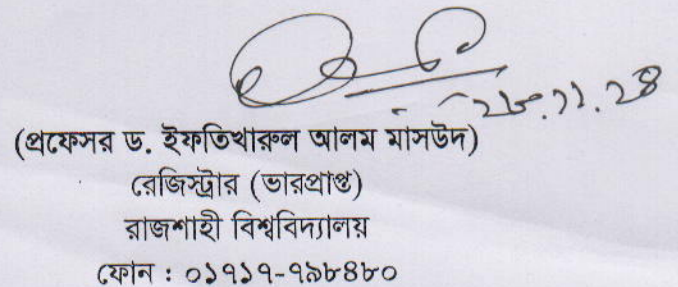 (প্রফেসর ড. ইফতিখারুল আলম মাসউদ)
রেজিস্ট্রার (ভারপ্রাপ্ত)
রাজশাহী বিশ্ববিদ্যালয়
ফোন : ০১৭১৭-৭৯৮৪৮০